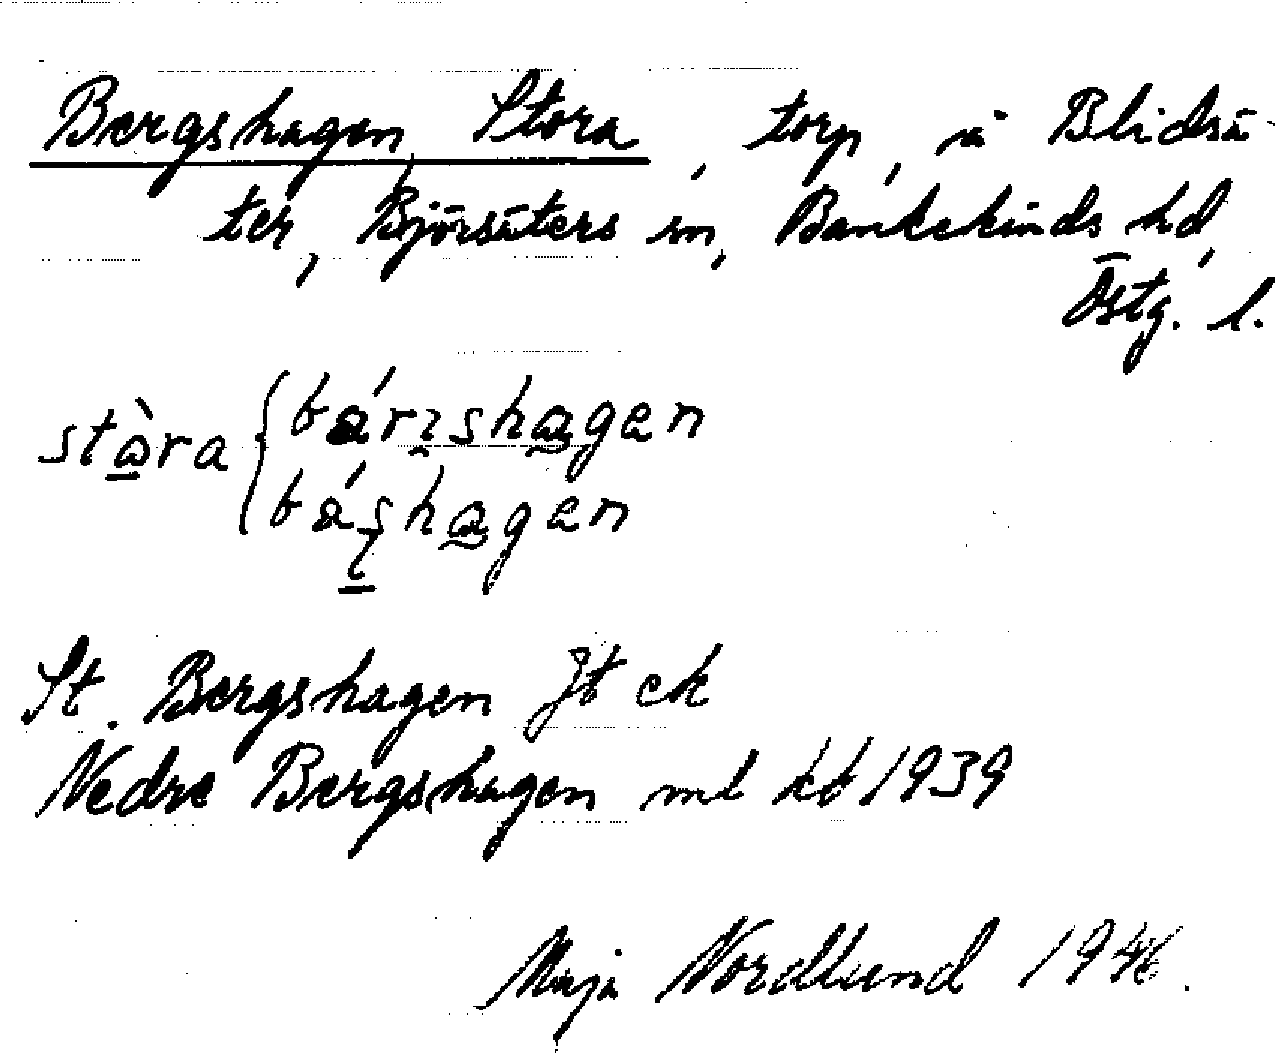 Bergshagen, Stora, torp, å Blidsä
ter, Björsäters sn, Bankekinds hd,
Östg. l.
stòra { bárʒshagen
báʂhagen
St. Bergshagen Jt ek
Nedre Bergshagen ml kb 1939
Maja Nordlund 1946.